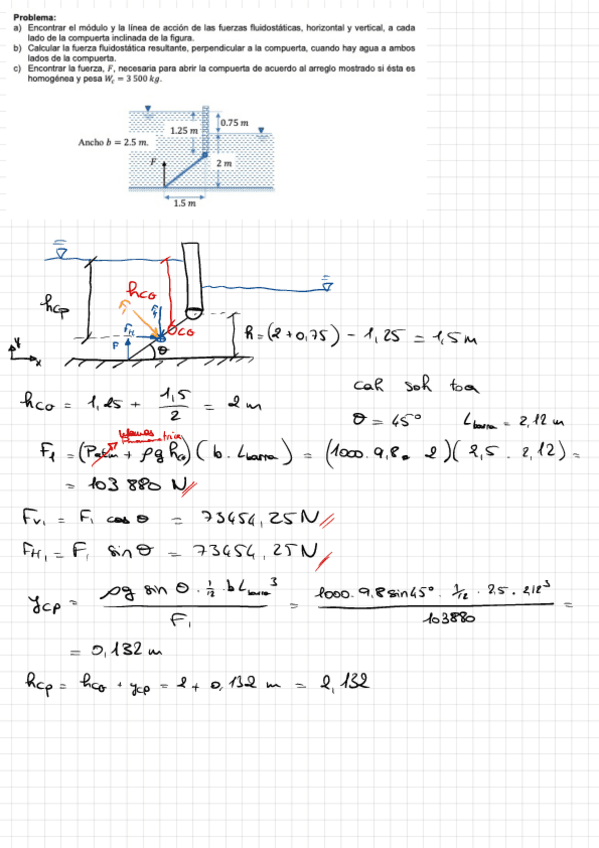 Problema:
a) Encontrar el módulo y la línea de acción de las fuerzas fluidostáticas, horizontal y vertical, a cada
lado de la compuerta inclinada de la figura.
b) Calcular la fuerza fluidostática resultante, perpendicular a la compuerta, cuando hay agua a ambos
lados de la compuerta.
c) Encontrar la fuerza, F, necesaria para abrir la compuerta de acuerdo al arreglo mostrado si ésta es
homogénea y pesa W_c = 3 500 kg.
0.75 m
1.25 m
Ancho b = 2.5 m.
F
2 m
1.5 m
hcp
hcG
F1
Fv
FH
CG
F
θ
y
x
h = (2+0,75) - 1,25 = 1,5 m
cah soh toa
hcG = 1,25 + 1,5/2 = 2 m
θ = 45° Lbarra = 2,12 m
F1 = (Patm + ρg hcG)(b. Lbarra) = (1000. 9,8. 2)(2,5. 2,12) =
= 103 880 N
Fv1 = F1 cos θ = 73454,25 N
FH1 = F1 sin θ = 73454,25 N
ycp = ρg sin θ · 1/12 · b Lbarra³ / F1 = 1000. 9,8 sin45°. 1/12 · 2,5. 2,12³ / 103880 =
= 0,132 m
hcp = hcG + ycp = 2 + 0,132 m = 2,132